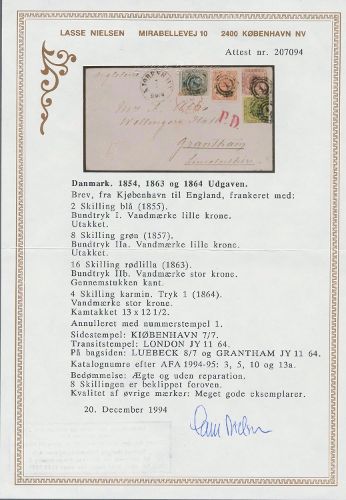 LASSE NIELSEN MIRABELLEVEJ 10 2400 KØBENHAVN NV
Attest nr. 207094
P.D.
Grantham
Danmark. 1854, 1863 og 1864 Udgaven.
Brev, fra Kjøbenhavn til England, frankeret med:
2 Skilling blå (1855).
Bundtryk I. Vandmærke lille krone.
Utakket.
8 Skilling grøn (1857).
Bundtryk IIa. Vandmærke lille krone.
Utakket.
16 Skilling rødlilla (1863).
Bundtryk IIb. Vandmærke stor krone.
Gennemstukken kant.
4 Skilling karmin. Tryk 1 (1864).
Vandmærke stor krone.
Kamtakket 13 x 12 1/2.
Annulleret med nummerstempel 1.
Sidestempel: KIØBENHAVN 7/7.
Transitstempel: LONDON JY 11 64.
På bagsiden: LUEBECK 8/7 og GRANTHAM JY 11 64.
Katalognumre efter AFA 1994-95: 3, 5, 10 og 13a.
Bedømmelse: Ægte og uden reparation.
8 Skillingen er beklippet foroven.
Kvalitet af øvrige mærker: Meget gode eksemplarer.
20. December 1994